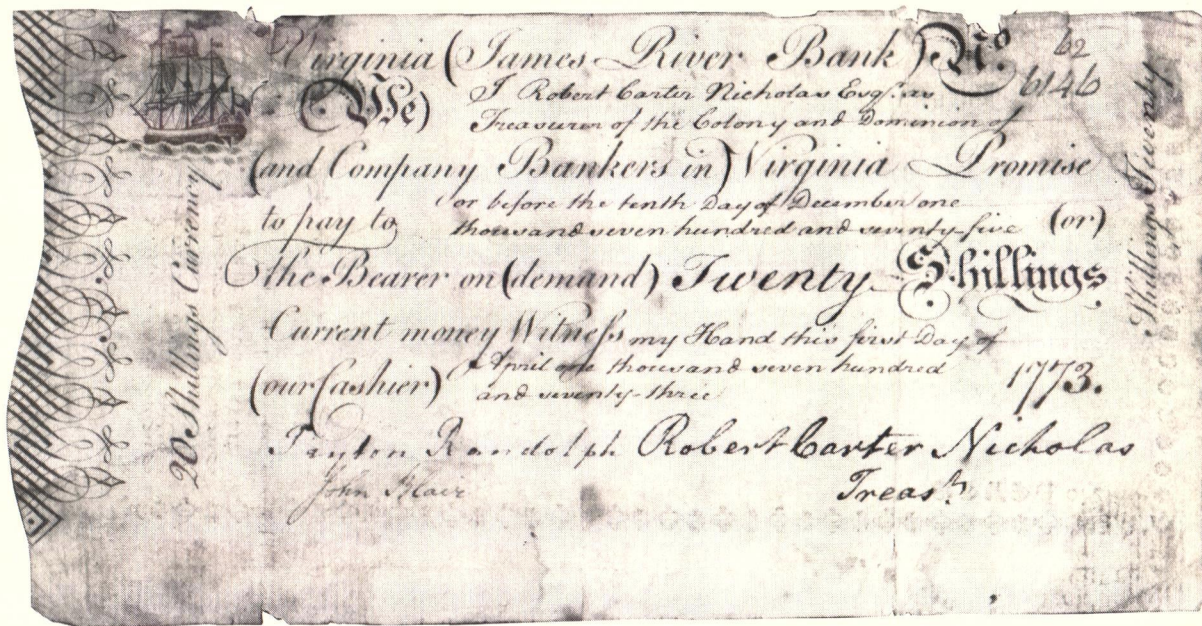 Virginia (James River Bank) No. 62
6146
(We) I Robert Carter Nicholas Esqr. as
Treasurer of the Colony and Dominion of
(and Company Bankers in) Virginia Promise
to pay to or before the tenth Day of December one
thousand seven hundred and seventy-five (or)
the Bearer on (demand) Twenty Shillings
Current money Witness my Hand this first Day of
(our Cashier) April one thousand seven hundred
and seventy-three 1773.
Payton Randolph Robert Carter Nicholas
John Blair Treasr
20 Shillings Currency
Shillings Twenty